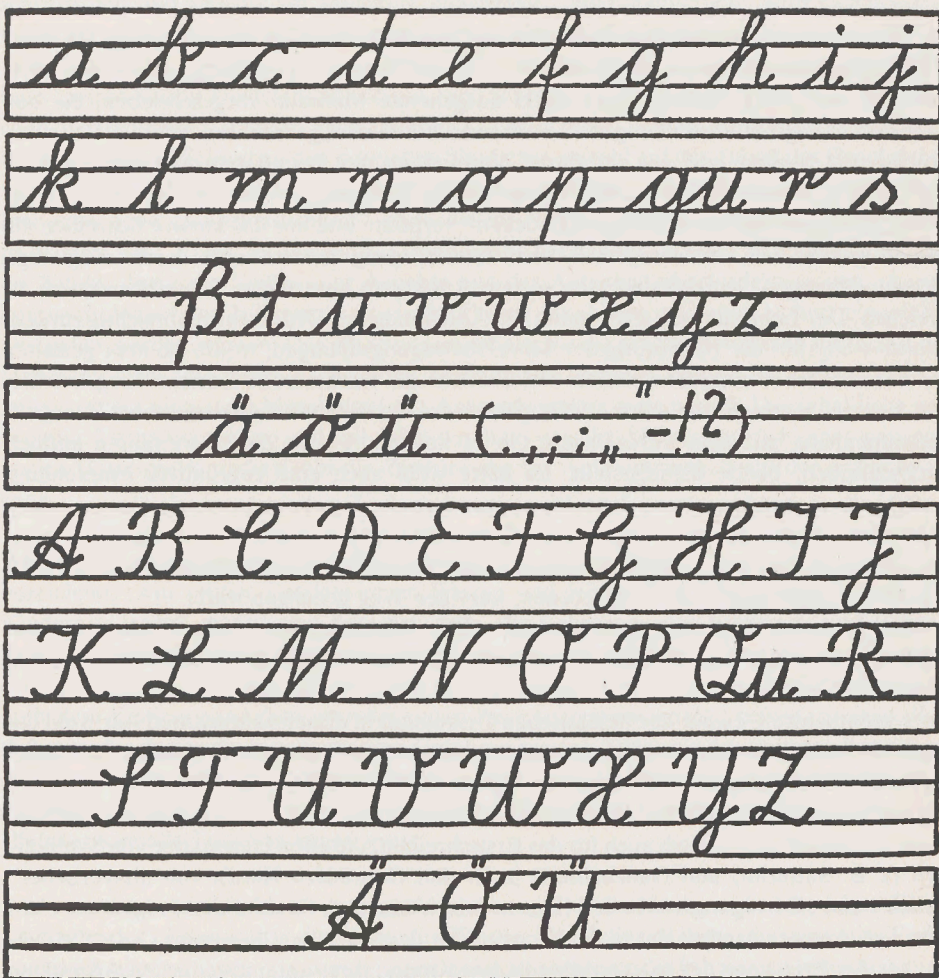 a b c d e f g h i j
k l m n o p qu r s
ß t u v w x y z
ä ö ü ( . , ; : „ " - ! ? )
A B C D E F G H I J
K L M N O P Qu R
S T U V W X Y Z
Ä Ö Ü